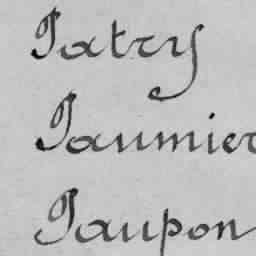 Patry
Paumier
Paupon